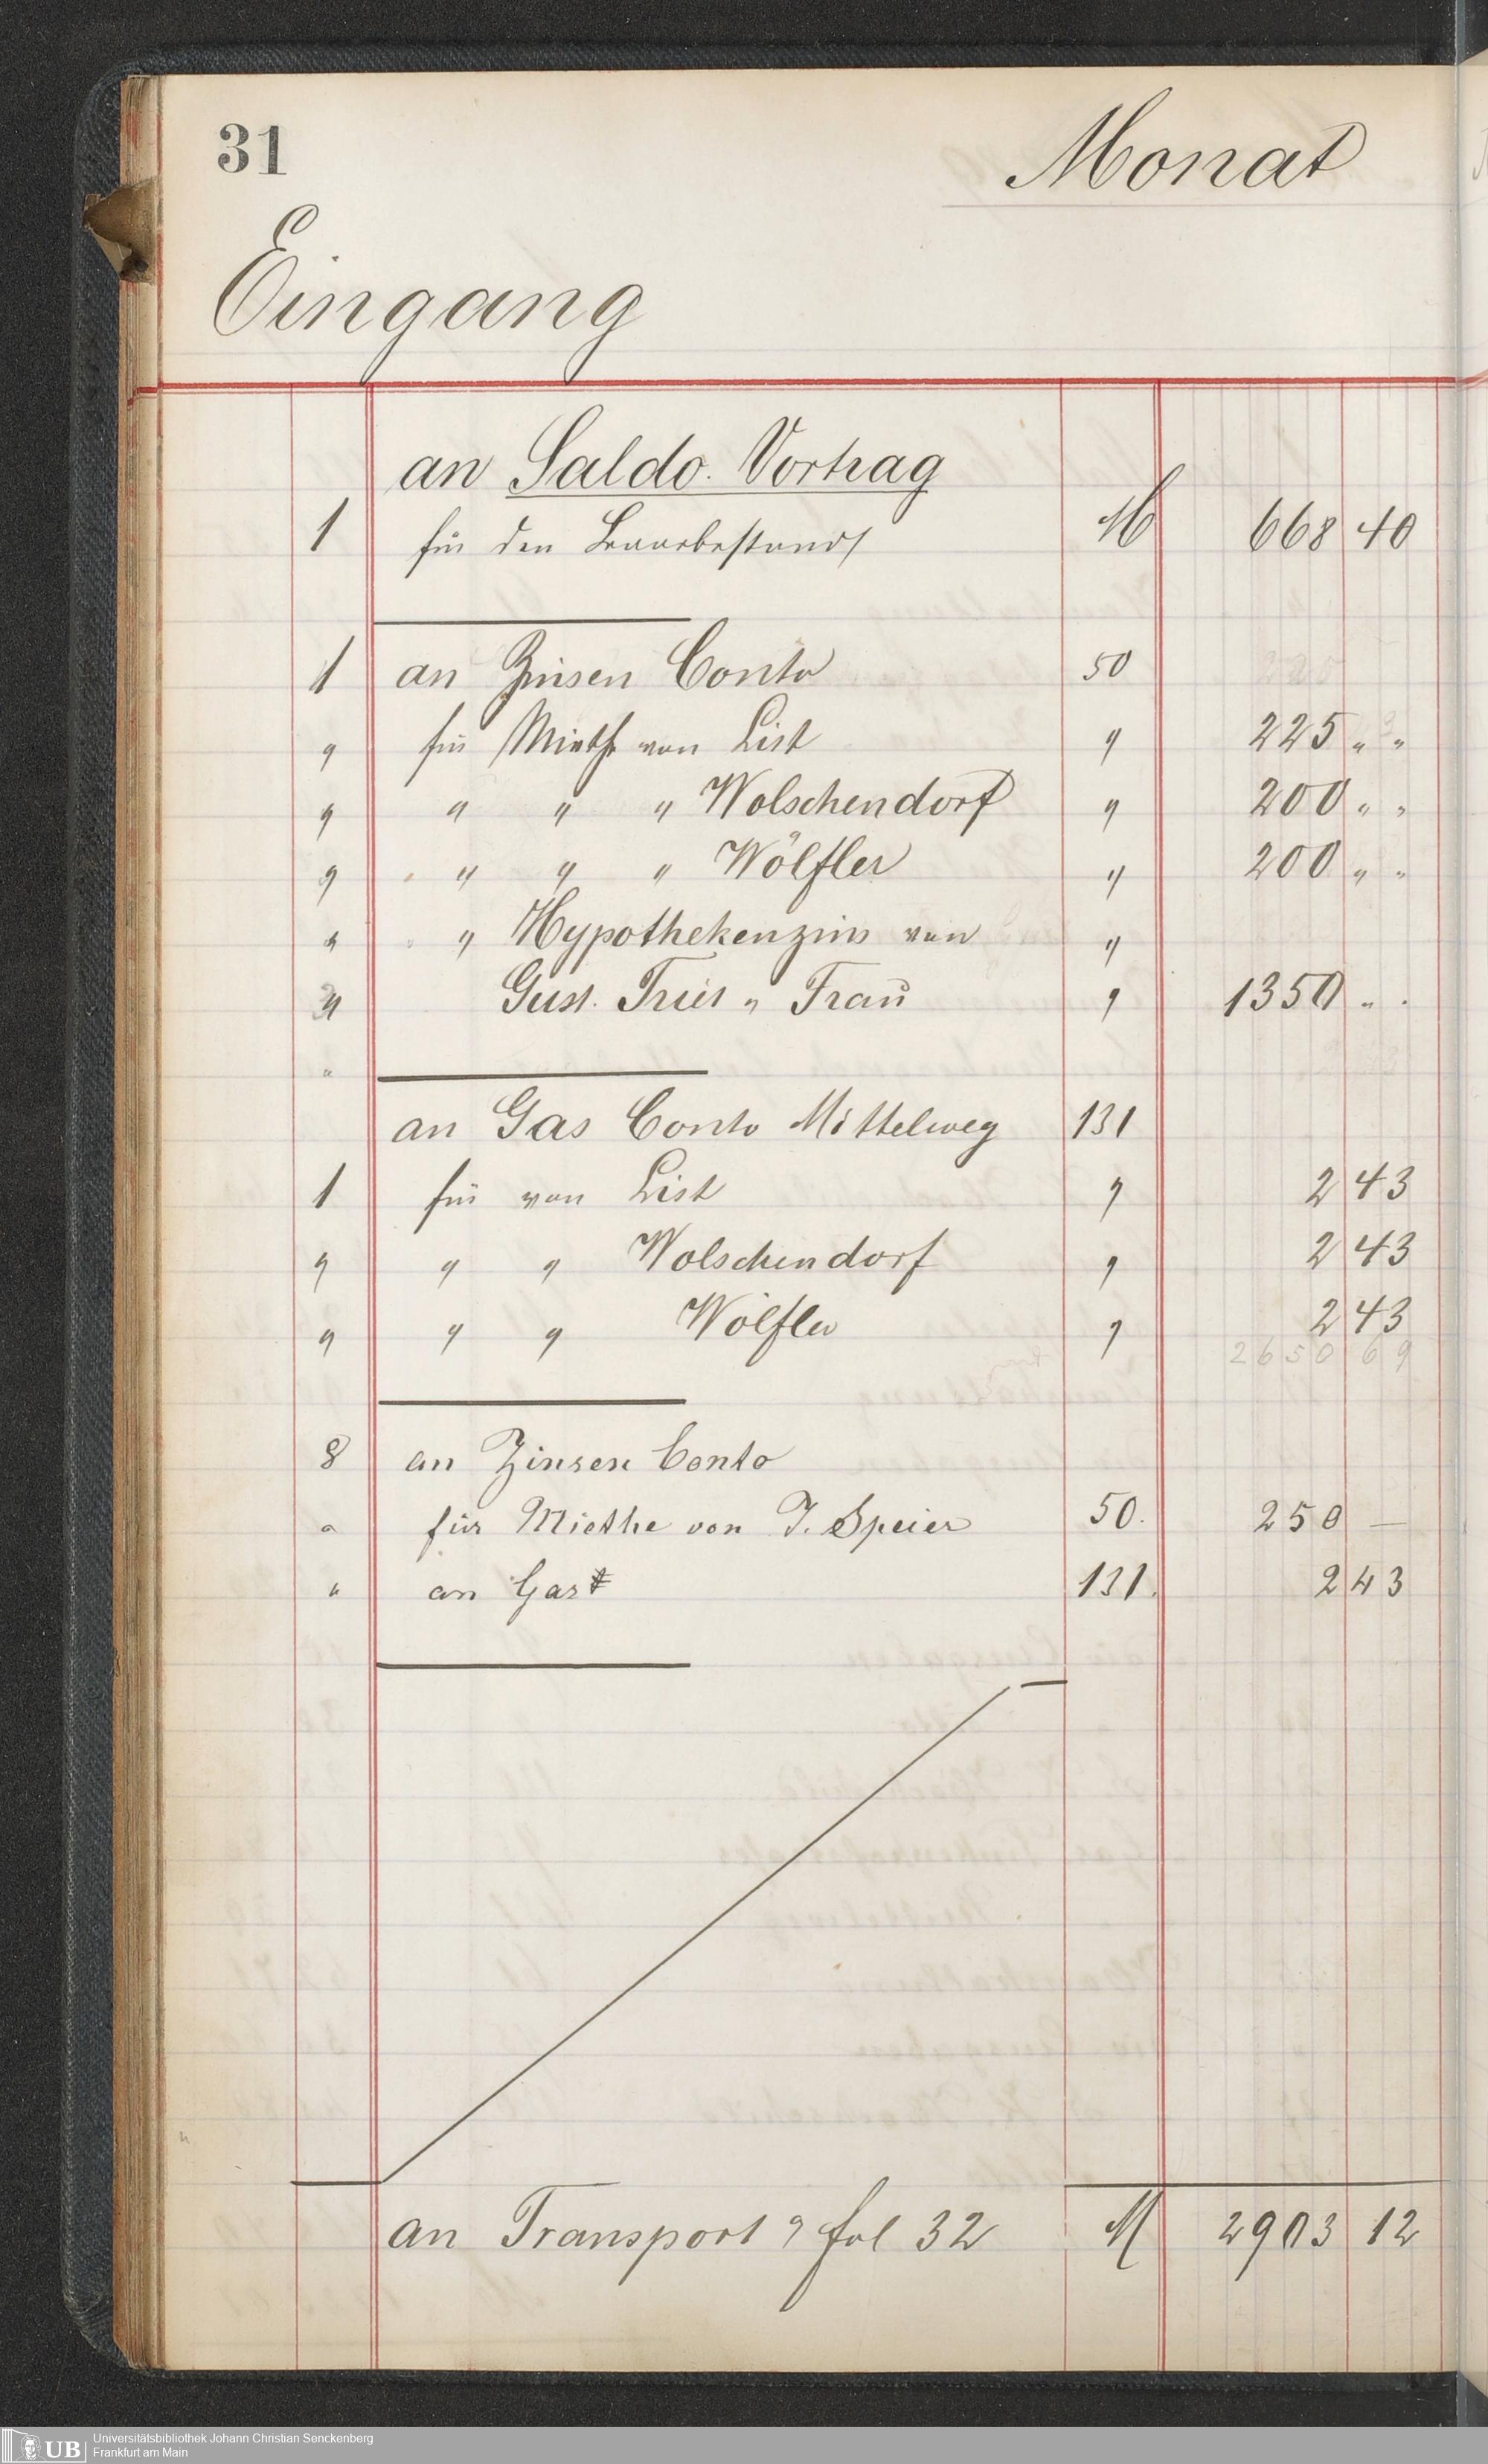 31
Monat
Eingang
an Saldo. Vortrag
1 für den Baarbestand M 668 40
1 an Zinsen Conto 50
" für Miethe von List " 225 " "
" " " " Wolschendorf " 200 " "
" " " " Wölfler " 200 " "
" " Hypothekenzins von "
" Gust. Trier " Frau " 1350 " "
"
an Gas Conto Mittelweg 131
1 für von List " 2 43
" " " Wolschendorf " 2 43
" " " Wölfler " 2 43
2650 69
8 an Zinsen Conto
" für Miethe von J. Speier 50. 250 —
" an Gas 131. 2 43
an Transport " fol 32 M 2903 12
UB
Universitätsbibliothek Johann Christian Senckenberg
Frankfurt am Main